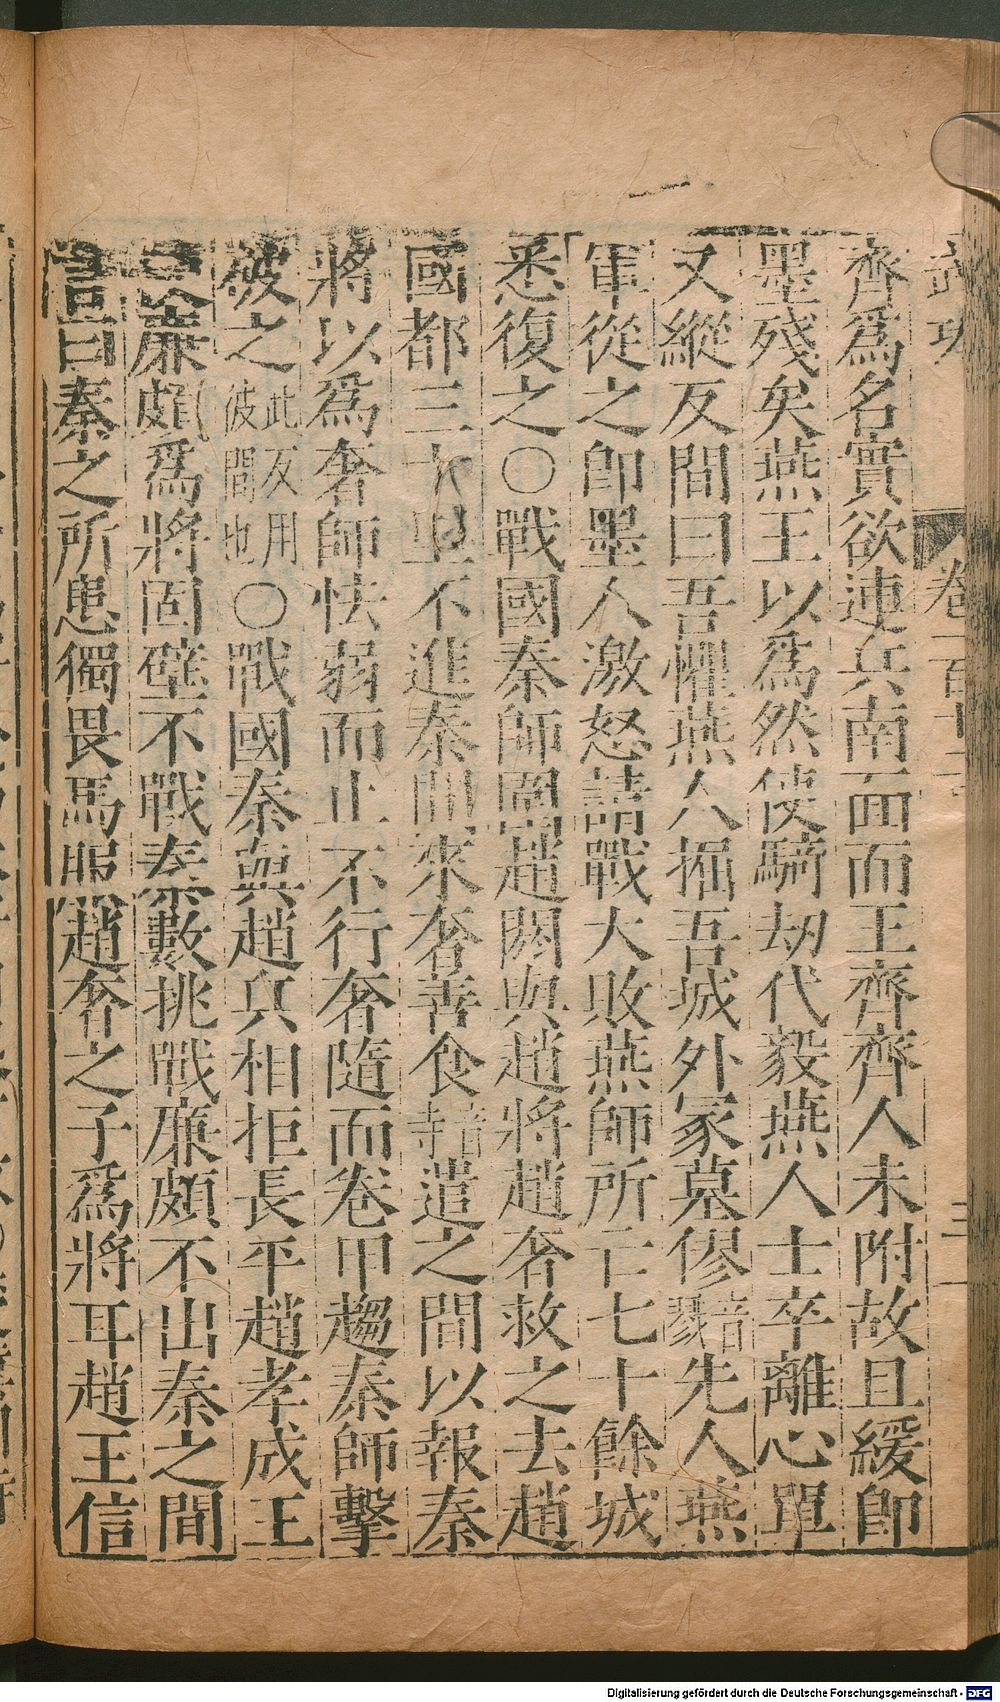 齊爲名實欲連兵南面而王齊齊人未附故且緩即
墨殘矣燕王以爲然使騎劫代毅燕人士卒離心單
又縱反間曰吾懼燕人掘吾城外冢墓僇音戮先人燕
軍從之即墨人激怒請戰大敗燕師所亡七十餘城
悉復之○戰國秦師圍趙閼與趙將趙奢救之去趙
國都三十里不進秦間來奢善食音寺遣之間以報秦
將以爲奢師怯弱而止不行奢隨而卷甲趨秦師擊
彼之此反用彼間也○戰國秦與趙兵相拒長平趙孝成王
廉頗爲將固壁不戰秦數挑戰廉頗不出秦之間
言曰秦之所患獨畏馬服趙奢之子爲將耳趙王信
卷百
Digitalisierung gefördert durch die Deutsche Forschungsgemeinschaft - DFG